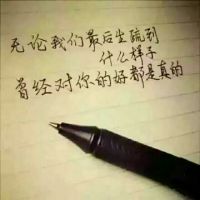 无论我们最后生疏到
什么样子
曾经对你的好都是真的